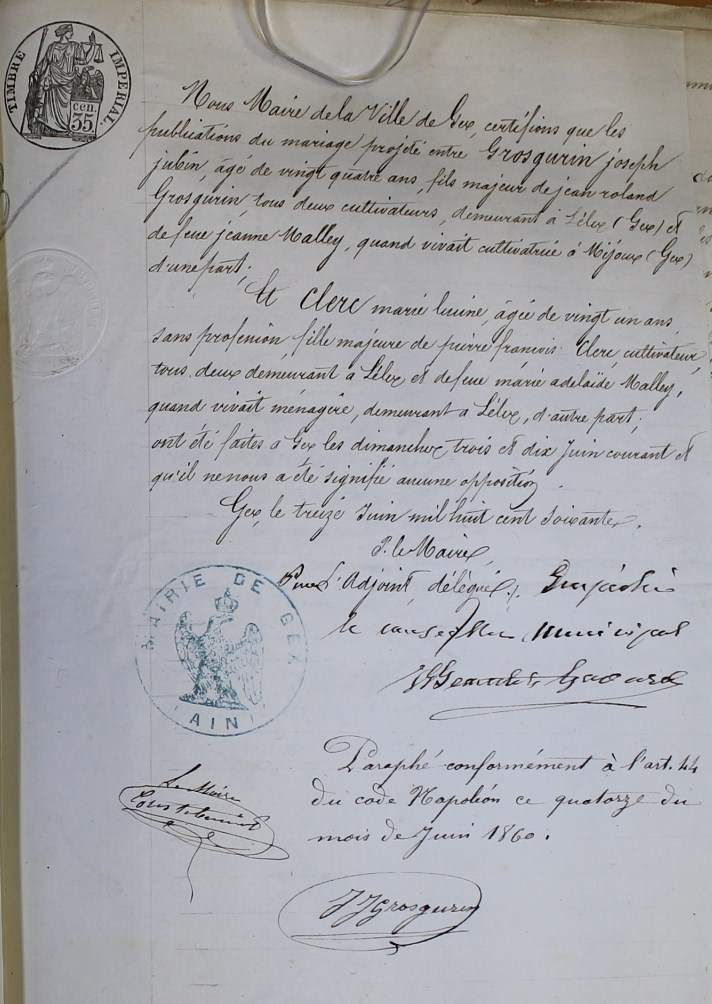 TIMBRE IMPERIAL.
35 cen.
Nous Maire de la Ville de Gex, certifions que les
publications du mariage projeté entre Grosgurin joseph
jubin, âgé de vingt quatre ans, fils majeur de jean roland
Grosgurin, tous deux cultivateurs, demeurant à Lélex (Gex) et
de feue jeanne Malley, quand vivait cultivatrice à Mijoux (Gex)
d'une part;
Et Clerc marie lucine, âgée de vingt un ans,
sans profession, fille majeure de pierre françois Clerc, cultivateur,
tous deux demeurant a Lélex et de feue marie adelaïde Malley,
quand vivait ménagère, demeurant a Lélex, d'autre part;
ont été faites a Gex les dimanches trois et dix Juin courant et
qu'il ne nous a été signifié aucune opposition.
Gex, le treize Juin mil huit cent soixante.
P. le Maire,
Pour l'Adjoint délégué, Empéché
le conseiller municipal
MAIRIE DE GEX
(AIN)
Paraphé conformément à l'art. 44
du code Napoléon ce quatorze du
mois de Juin 1860.
Le Maire
JJGrosgurin